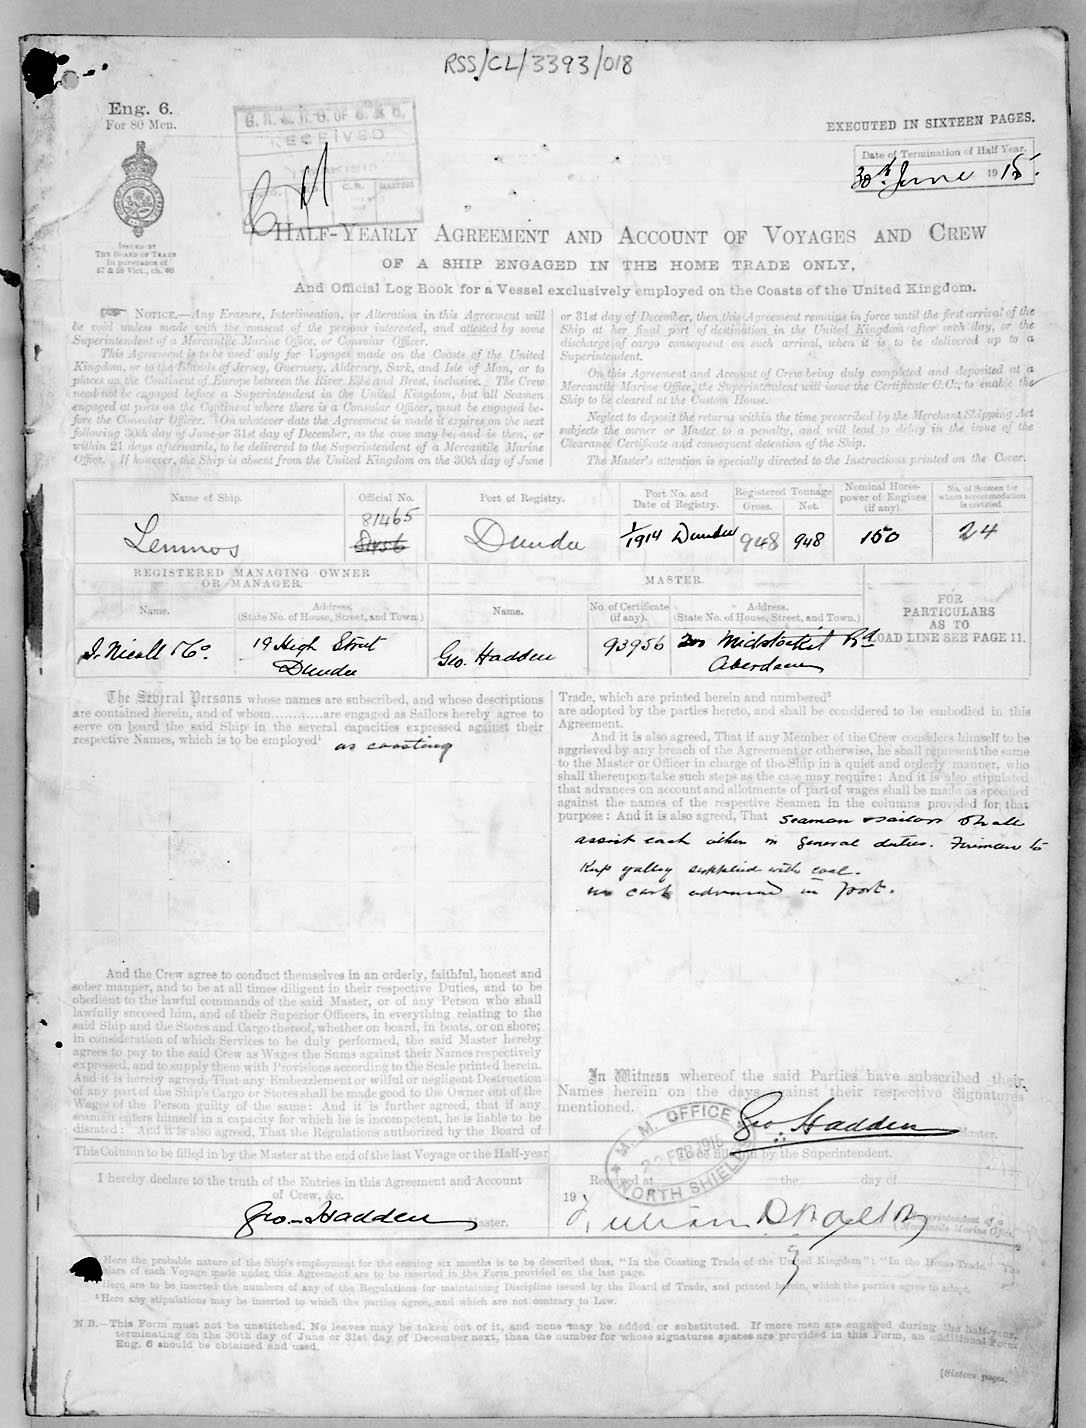 RSS/CL/3393/018
Eng. 6.
For 80 Men.
G. R. & R. G. OF S. & S.
RECEIVED
C.R.
MASTERS
EXECUTED IN SIXTEEN PAGES.
Date of Termination of Half Year.
30th June 1915.
ISSUED BY
THE BOARD OF TRADE
In pursuance of
57 & 58 Vict., ch. 60
HALF-YEARLY AGREEMENT AND ACCOUNT OF VOYAGES AND CREW
OF A SHIP ENGAGED IN THE HOME TRADE ONLY,
And Official Log Book for a Vessel exclusively employed on the Coasts of the United Kingdom.
NOTICE.—Any Erasure, Interlineation, or Alteration in this Agreement will
be void unless made with the consent of the persons interested, and attested by some
Superintendent of a Mercantile Marine Office, or Consular Officer.
This Agreement is to be used only for Voyages made on the Coasts of the United
Kingdom, or to the Islands of Jersey, Guernsey, Alderney, Sark, and Isle of Man, or to
places on the Continent of Europe between the River Elbe and Brest, inclusive. The Crew
need not be engaged before a Superintendent in the United Kingdom, but all Seamen
engaged at ports on the Continent where there is a Consular Officer, must be engaged be-
fore the Consular Officer. On whatever date the Agreement is made it expires on the next
following 30th day of June or 31st day of December, as the case may be, and is then, or
within 21 days afterwards, to be delivered to the Superintendent of a Mercantile Marine
Office. If however, the Ship is absent from the United Kingdom on the 30th day of June
or 31st day of December, then this Agreement remains in force until the first arrival of the
Ship at her final port of destination in the United Kingdom after such day, or the
discharge of cargo consequent on such arrival, when it is to be delivered up to a
Superintendent.
On this Agreement and Account of Crew being duly completed and deposited at a
Mercantile Marine Office, the Superintendent will issue the Certificate C.C., to enable the
Ship to be cleared at the Custom House.
Neglect to deposit the returns within the time prescribed by the Merchant Shipping Act
subjects the owner or Master to a penalty, and will lead to delay in the issue of the
Clearance Certificate and consequent detention of the Ship.
The Master's attention is specially directed to the Instructions printed on the Cover.
Name of Ship.
Official No.
Port of Registry.
Port No. and
Date of Registry.
Registered Tonnage
Gross. Net.
Nominal Horse-
power of Engines
(if any).
No. of Seamen for
whom accommodation
is certified.
Lemnos
81465
Dundee
1/1914 Dundee
948
948
150
24
REGISTERED MANAGING OWNER
OR MANAGER.
MASTER.
Name.
Address.
(State No. of House, Street, and Town.)
Name.
No. of Certificate
(if any).
Address.
(State No. of House, Street, and Town.)
FOR
PARTICULARS
AS TO
LOAD LINE SEE PAGE 11.
J. Nicoll & Co.
19 High Street
Dundee
Geo. Hadden
93956
Midstocket Rd
Aberdeen
The Several Persons whose names are subscribed, and whose descriptions
are contained herein, and of whom............are engaged as Sailors hereby agree to
serve on board the said Ship in the several capacities expressed against their
respective Names, which is to be employed¹ as coasting
And the Crew agree to conduct themselves in an orderly, faithful, honest and
sober manner, and to be at all times diligent in their respective Duties, and to be
obedient to the lawful commands of the said Master, or of any Person who shall
lawfully succeed him, and of their Superior Officers, in everything relating to the
said Ship and the Stores and Cargo thereof, whether on board, in boats, or on shore;
in consideration of which Services to be duly performed, the said Master hereby
agrees to pay to the said Crew as Wages the Sums against their Names respectively
expressed, and to supply them with Provisions according to the Scale printed herein.
And it is hereby agreed, That any Embezzlement or wilful or negligent Destruction
of any part of the Ship's Cargo or Stores shall be made good to the Owner out of the
Wages of the Person guilty of the same: And it is further agreed, that if any
seaman offers himself in a capacity for which he is incompetent, he is liable to be
disrated: And it is also agreed, That the Regulations authorized by the Board of
Trade, which are printed herein and numbered²
are adopted by the parties hereto, and shall be considered to be embodied in this
Agreement.
And it is also agreed, That if any Member of the Crew considers himself to be
aggrieved by any breach of the Agreement or otherwise, he shall represent the same
to the Master or Officer in charge of the Ship in a quiet and orderly manner, who
shall thereupon take such steps as the case may require: And it is also stipulated
that advances on account and allotments of part of wages shall be made as specified
against the names of the respective Seamen in the columns provided for that
purpose: And it is also agreed, That Seamen & sailors shall
assist each other in general duties. Firemen to
keep galley supplied with coal.
no cash advanced in port.
In Witness whereof the said Parties have subscribed their
Names herein on the days against their respective Signatures
mentioned.
Geo. Hadden Master.
M. M. OFFICE
FEB 1915
NORTH SHIELDS
This Column to be filled in by the Master at the end of the last Voyage or the Half-year
To be filled in by the Superintendent.
I hereby declare to the truth of the Entries in this Agreement and Account
of Crew, &c.
Geo. Hadden Master.
Received at the day of
19
Superintendent of a
Mercantile Marine Office.
Here the probable nature of the Ship's employment for the ensuing six months is to be described thus, "In the Coasting Trade of the United Kingdom"; "In the Home Trade." The
dates of each Voyage made under this Agreement are to be inserted in the Form provided on the last page.
Here are to be inserted the numbers of any of the Regulations for maintaining Discipline issued by the Board of Trade, and printed herein, which the parties agree to adopt.
³Here any stipulations may be inserted to which the parties agree, and which are not contrary to Law.
N.B.—This Form must not be unstitched. No leaves may be taken out of it, and none may be added or substituted. If more men are engaged during the half-year,
terminating on the 30th day of June or 31st day of December next, than the number for whose signatures spaces are provided in this Form, an additional Form
Eng. 6 should be obtained and used.
[Sixteen pages.